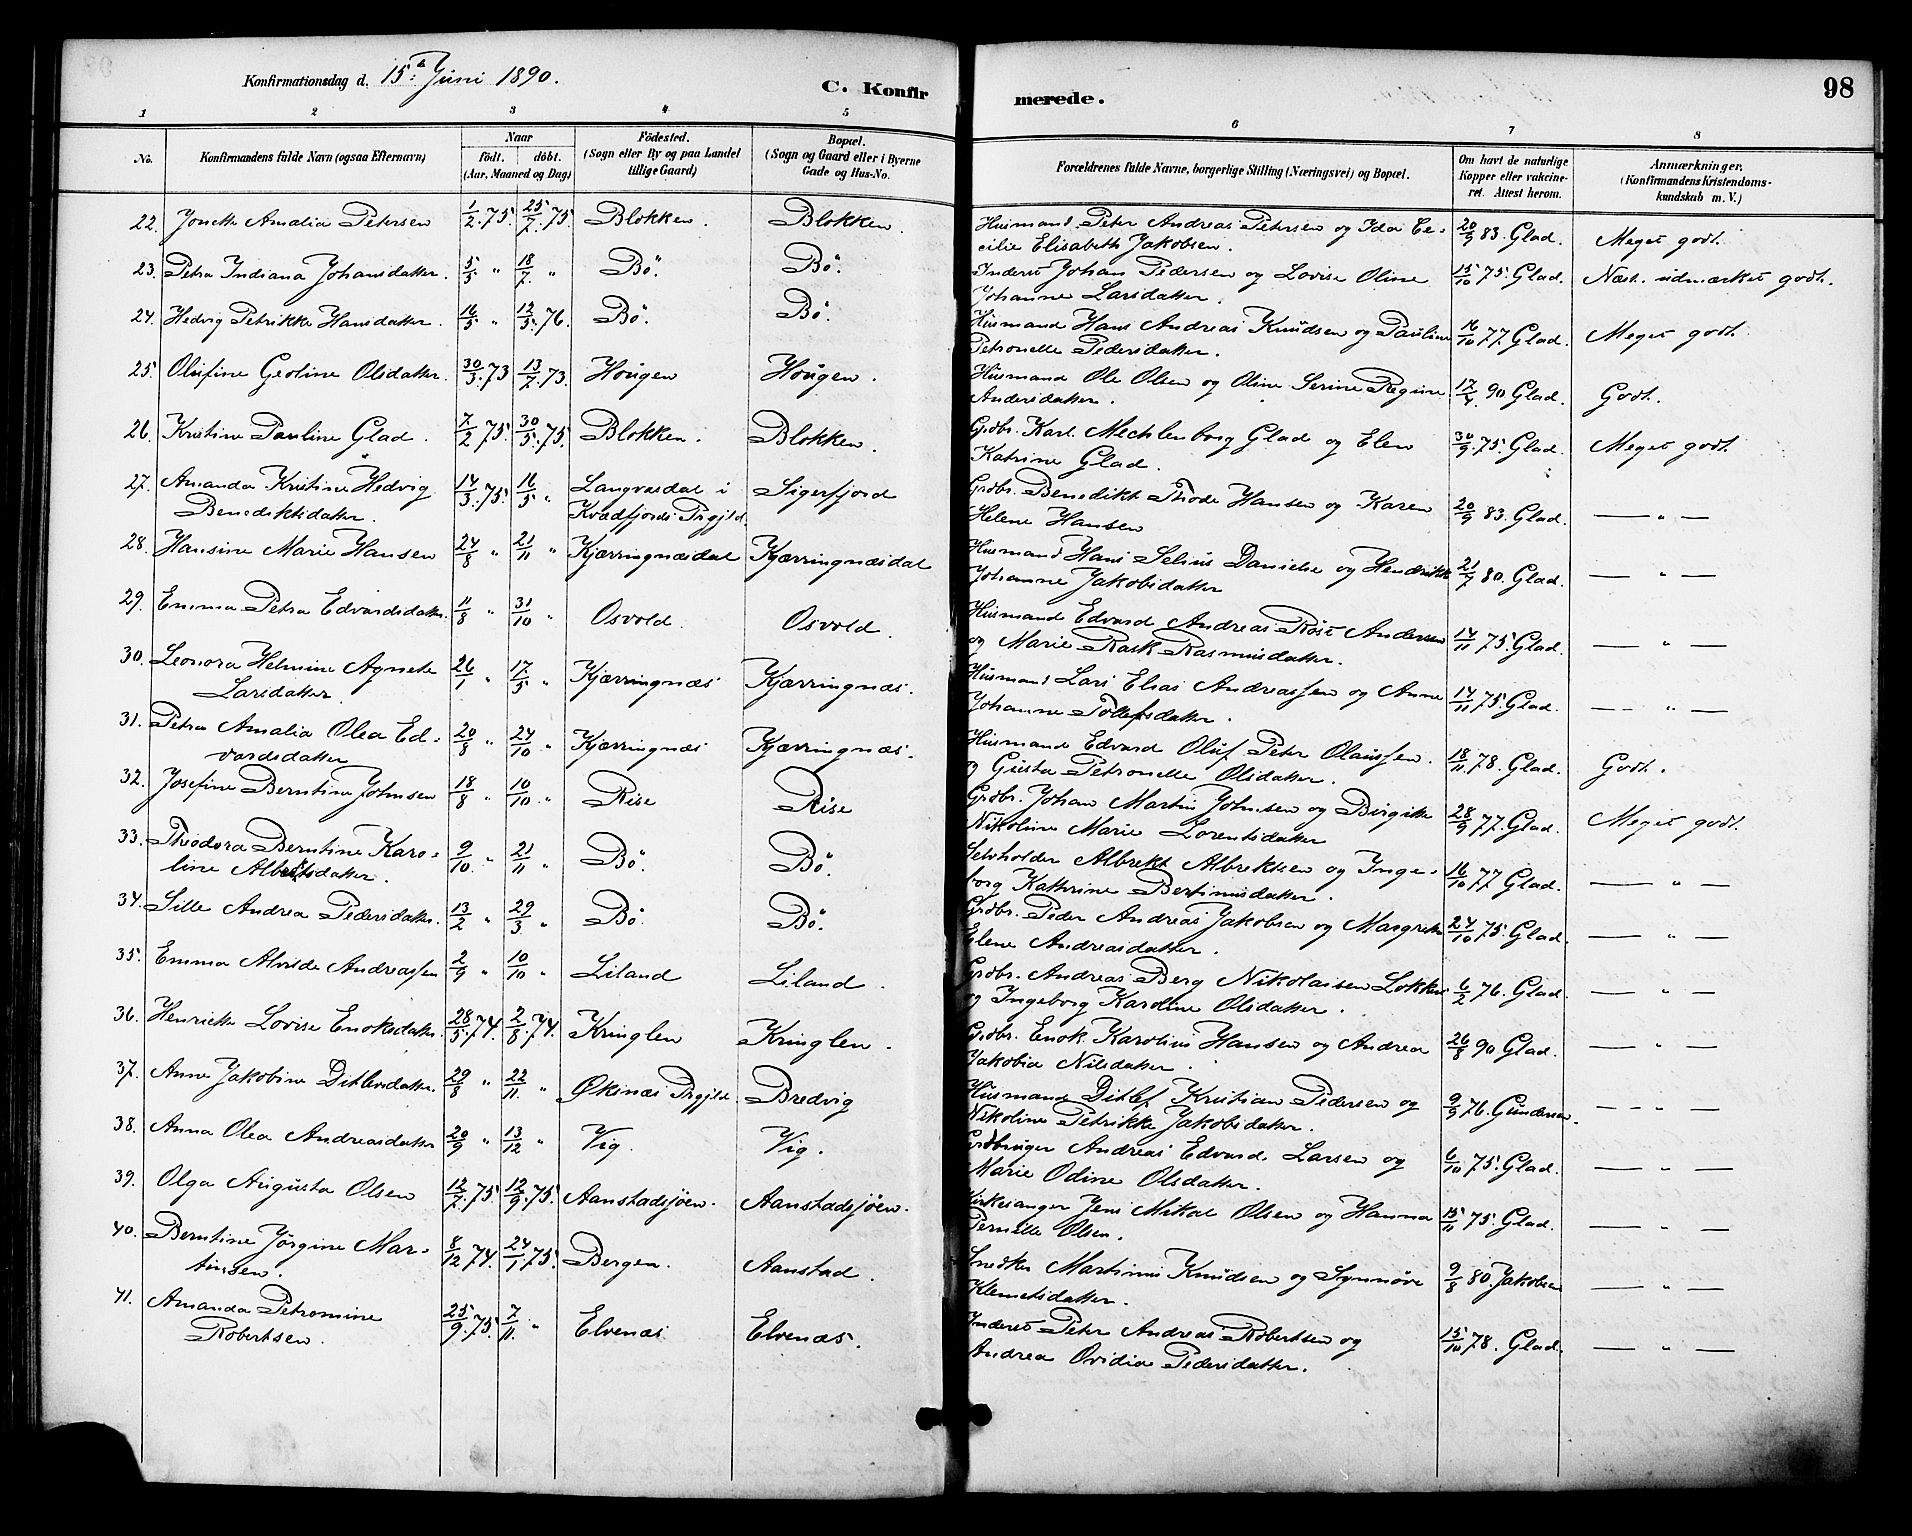 Konfirmationsdag d. 15de Juni 1890.
C. Konfir
merede.
98
1 2 3 4 5 6 7 8
No.
Konfirmandens fulde Navn (ogsaa Efternavn)
Naar
födt. döbt.
(Aar, Maaned og Dag)
Födested.
(Sogn eller By og paa Landet
tillige Gaard)
Bopæl.
(Sogn og Gaard eller i Byerne
Gade og Hus-No.
Forældrenes fulde Navne, borgerlige Stilling (Næringsvei) og Bopæl.
Om havt de naturlige
Kopper eller vakcine-
ret. Attest herom.
Anmærkninger,
(Konfirmandens Kristendoms-
kundskab m. V.)
22. Jonette Amalia Petersen 1/2 75. 25/7 75. Blokken. Blokken. Husmand Peter Andreas Petersen og Ida Ce- 20/9 83. Glad. Meget godt.
cilie Elisabeth Jakobsen.
23. Petra Indiana Johansdatter. 5/5 " 18/7 " Bö. Bö. Inderst Johan Pedersen og Lovise Oline 15/10 75. Glad. Næst. udmærket godt.
Johanne Larsdatter.
24. Hedvig Petrikke Hansdatter. 16/5 " 12/5 76. Bö. Bö. Husmand Hans Andreas Knudsen og Pauline 16/10 77 Glad. Meget godt.
Petronelle Pedersdatter.
25. Olufine Geoline Olsdatter. 30/3 73 13/7 73. Hougen Hougen. Husmand Ole Olsen og Oline Serine Regine 17/4 90 Glad. Godt.
Andersdatter.
26. Kristine Pauline Glad. 7/2 75. 30/5 75. Blokken. Blokken. Grdbr. Karl Mechlenborg Glad og Elen 30/9 75. Glad. Meget godt
Katrine Glad.
27. Amanda Kristine Hedvig 14/3 75. 16/5 " Langvasdal i Sigerfjord Grdbr. Benedikt Thode Hansen og Karen 20/9 83. Glad. — " —
Benediktsdatter. Kvædfjords Prgjld. Helene Hansen
28. Hansine Marie Hansen 24/8 " 21/11 " Kjærringnæsdal Kjærringnæsdal Husmand Hans Selius Danielse og Hendrikke 21/7 80. Glad. — " —
Johanne Jakobsdatter
29. Emma Petra Edvardsdatter. 11/8 " 31/10 " Osvold. Osvold. Husmand Edvard Andreas Röst Andersen 14/11 75. Glad. — " —
og Marie Rask Rasmusdatter.
30. Leonora Helmine Agnete 26/1 " 17/5 " Kjærringnæs Kjærringnæs. Husmand Lars Elias Andreassen og Anne 14/11 75. Glad. — " —
Larsdatter. Johanne Tollefsdatter.
31. Petra Amalia Olea Ed- 20/8 " 24/10 " Kjærringnæs Kjærringnæs. Husmand Edvard Oluf Peter Olaussen. 18/11 78. Glad. Godt.
vardsdatter og Gusta Petronelle Olsdatter.
32. Josefine Berntine Johnsen 18/8 " 10/10 " Rise Rise Grdbr. Johan Martin Johnsen og Birgitte 28/9 77. Glad. Meget godt.
Nikoline Marie Lorentsdatter
33. Theodora Berntine Karo- 9/10 " 21/11 " Bö. Bö. Selvholder Albrekt Albrektsen og Inge- 16/10 77 Glad. — " —
line Albertsdatter. borg Kathrine Bertinusdatter.
34. Sille Andrea Pedersdatter. 13/2 " 29/3 " Bö. Bö. Grdbr. Peder Andreas Jakobsen og Margrete 24/10 75. Glad. — " —
Elene Andreasdatter.
35. Emma Alvilde Andreassen 2/9 " 10/10 " Liland Liland. Grdbr. Andreas Berg Nikolaisen Lokken 6/2 76. Glad. — " —
og Ingeborg Karoline Olsdatter.
36. Henriette Lovise Enoksdatter. 28/5 74. 2/8 74. Kringlen Kringlen. Grdbr. Enok Karolius Hansen og Andrea 26/8 90 Glad. — " —
Jakobia Nilsdatter.
37. Anne Jakobine Ditlevsdatter. 29/8 " 22/11 " Øksnæs Prgjld. Bredvig Husmand Ditlef Kristian Pedersen og 9/9 76. Gundersen. — " —
Nikoline Petrikke Jakobsdatter.
38. Anna Olea Andreasdatter 20/9 " 13/12 " Vig. Vig. Grdbruger Andreas Edvard Larsen og 6/10 75. Glad. — " —
Marie Odine Olsdatter.
39. Olga Augusta Olsen 12/7 75. 12/9 75. Aanstadsjöen. Aanstadsjöen. Kirkesanger Jens Mikal Olsen og Hanna 15/11 75. Glad. — " —
Pernille Olsen.
40. Berntine Jörgine Mar- 8/12 74. 24/1 75. Bergen. Aanstad. Snedker Martinus Knudsen og Synnöve 9/8 80. Jakobsen — " —
tinsen. Klemetsdatter.
41. Amanda Petromine 25/9 75. 7/11 " Elvenæs Elvenæs. Inderst Peter Andreas Robertsen og 15/10 78. Glad. — " —
Robertsen. Andrea Ovidia Pedersdatter.